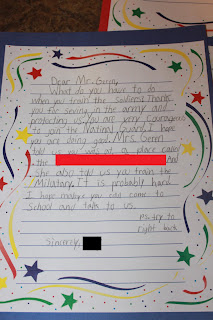 Dear Mr. Geren,
What do you have to do
when you train the soldiers? Thank
you for serving in the army and
protecting us. You are very Courageous
to join the National Guard. I hope
you are doing good. Mrs. Geren
told us you work at a place called
the And
she also told us you train the
Military. It is probably hard.
I hope maybe you can come to
School and talk to us.
P.S. try to
right back
Sincerely,